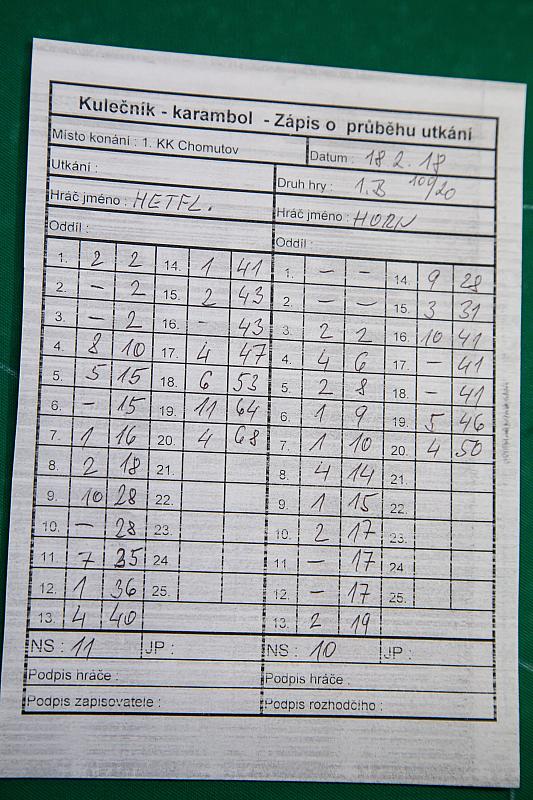 Kulečník - karambol - Zápis o průběhu utkání
Místo konání : 1. KK Chomutov Datum : 18 2. 18
Utkání : Druh hry : 1.B 100/20
Hráč jméno : HETFL. Hráč jméno : HORN
Oddíl : Oddíl :
1. 2 2 14. 1 41 1. – – 14. 9 28
2. – 2 15. 2 43 2. – – 15. 3 31
3. – 2 16. – 43 3. 2 2 16. 10 41
4. 8 10 17. 4 47 4. 4 6 17. – 41
5. 5 15 18. 6 53 5. 2 8 18. – 41
6. – 15 19. 11 64 6. 1 9 19. 5 46
7. 1 16 20. 4 68 7. 1 10 20. 4 50
8. 2 18 21. 8. 4 14 21.
9. 10 28 22. 9. 1 15 22.
10. – 28 23. 10. 2 17 23.
11. 7 35 24 11 – 17 24
12. 1 36 25. 12. – 17 25.
13. 4 40 13. 2 19
NS : 11 JP : NS : 10 JP :
Podpis hráče : Podpis hráče :
Podpis zapisovatele : Podpis rozhodčího :